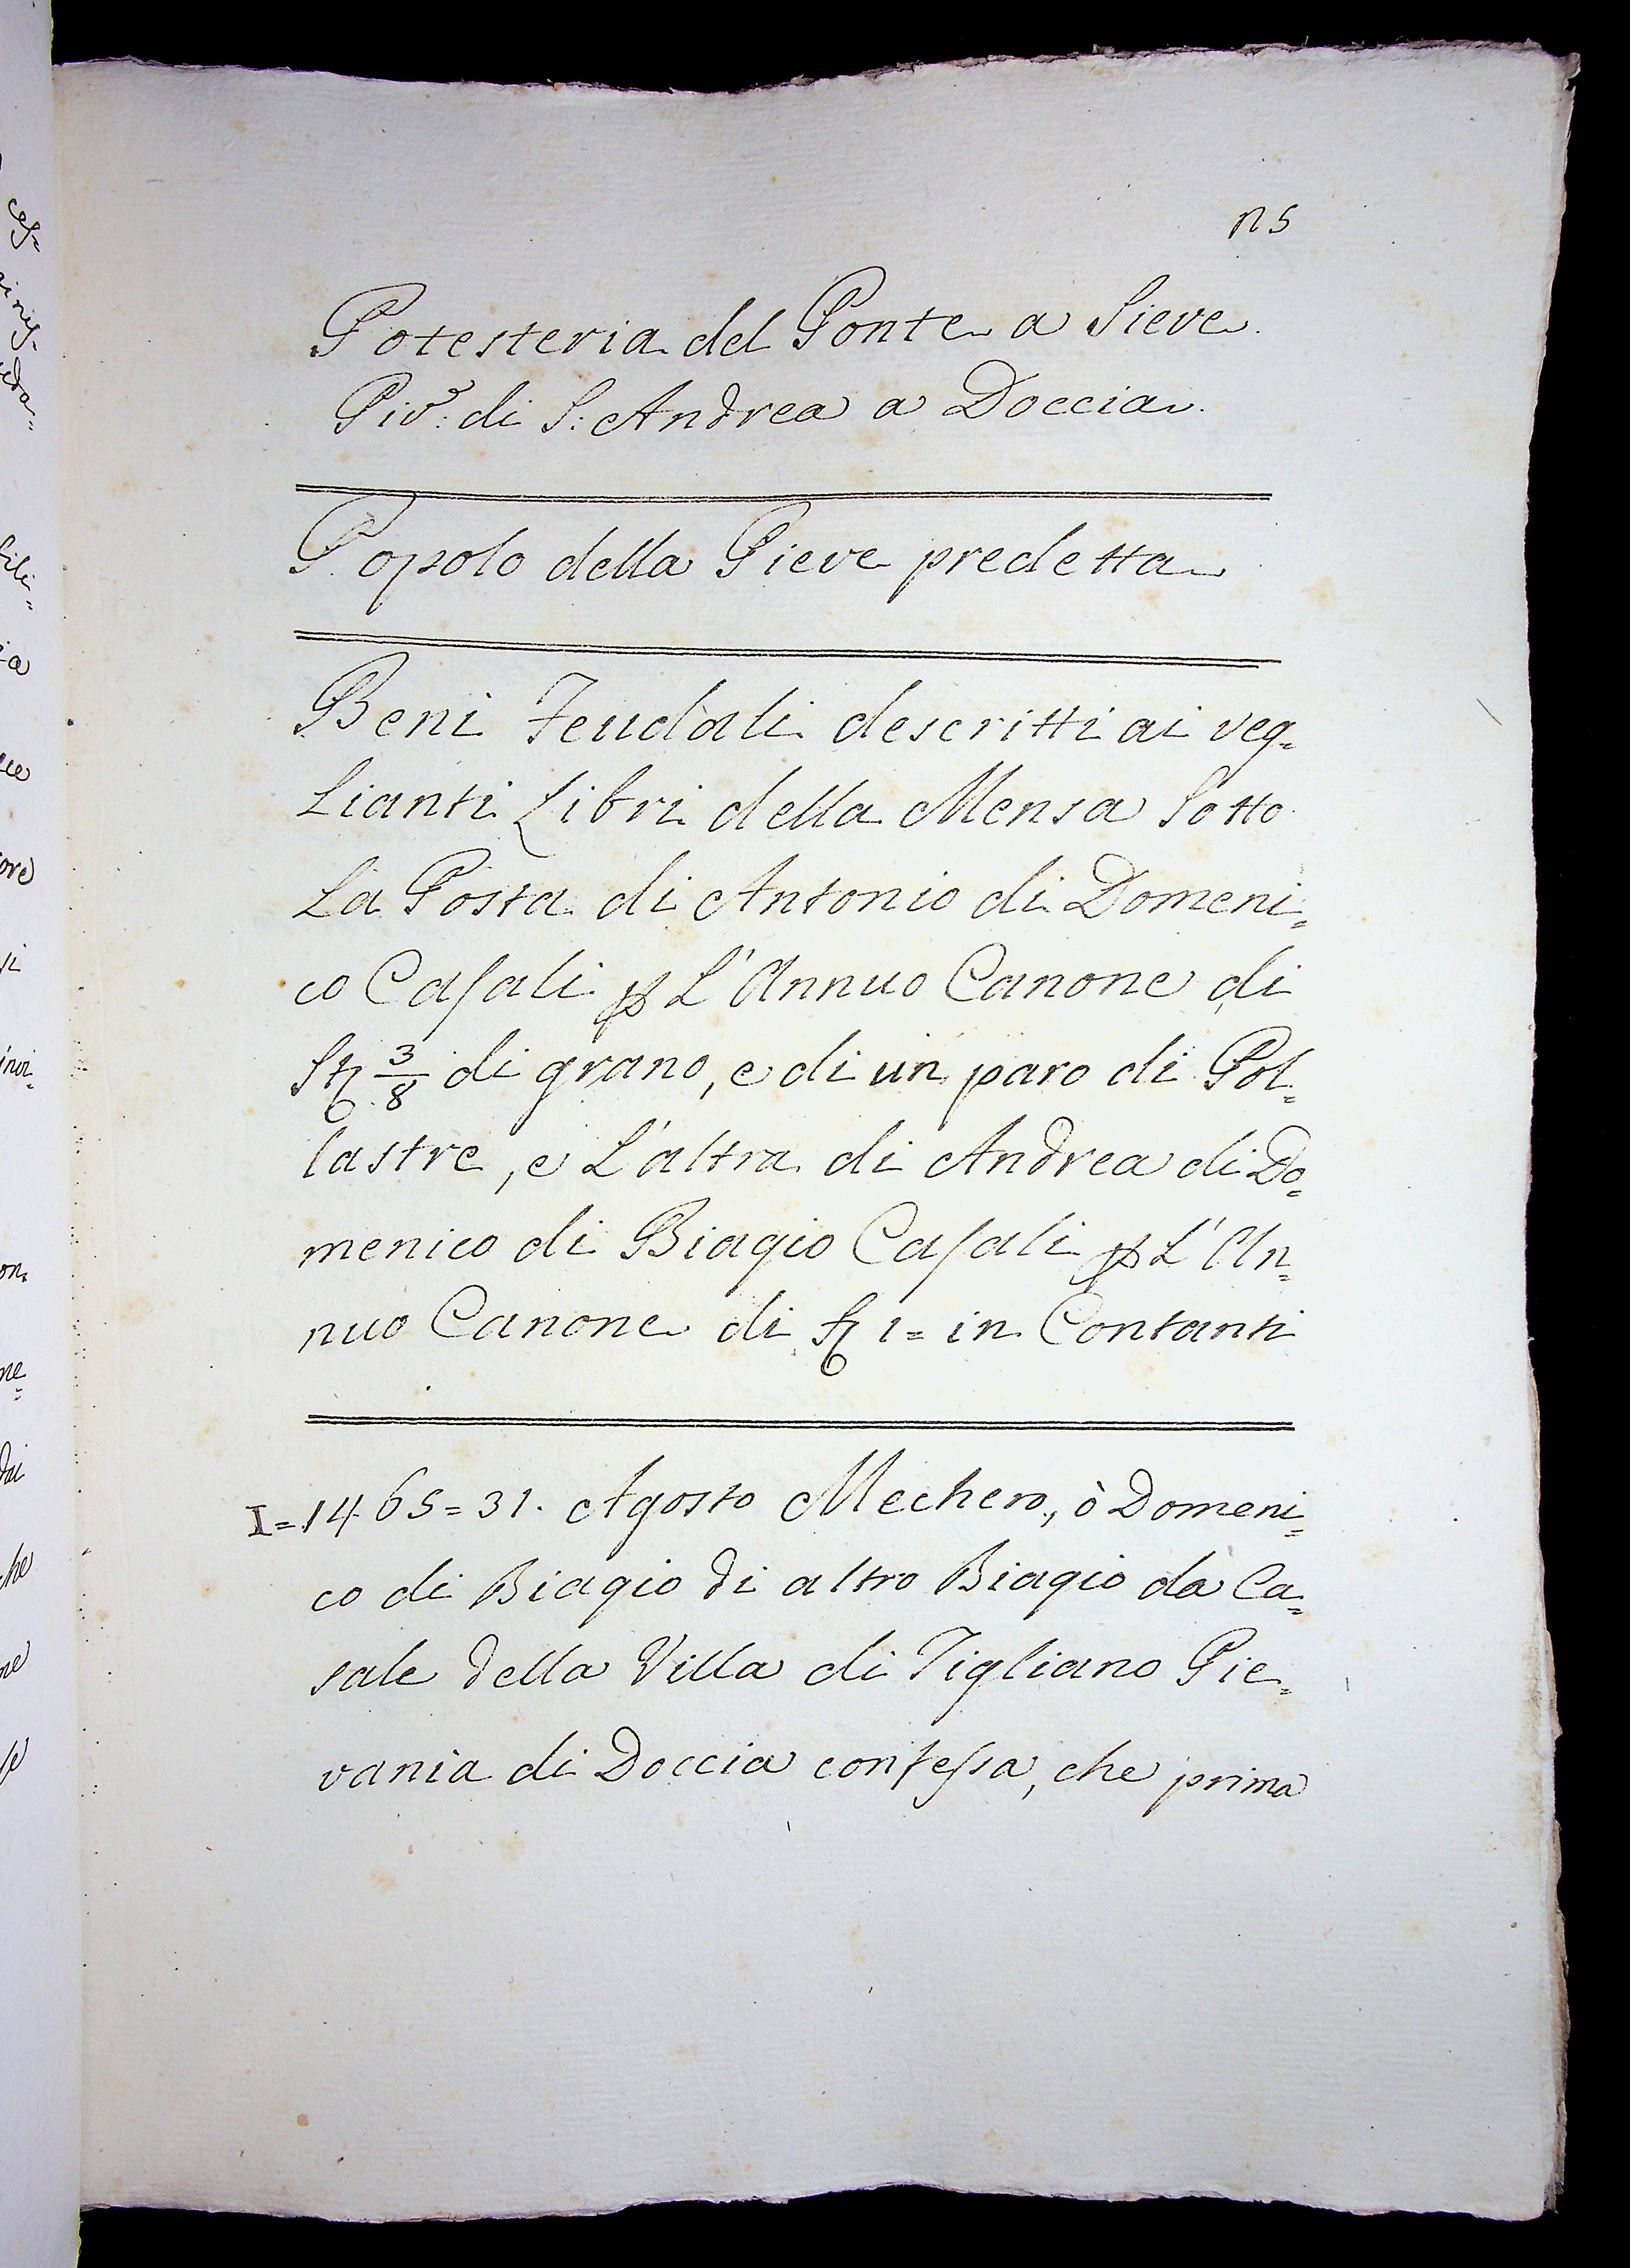 n 5
Potesteria del Ponte a Sieve.
Piv.e di S: Andrea a Doccia.
Popolo della Pieve predetta
Beni Feudali descritti ai veg=
Lianti Libri della Mensa Sotto
La Posta di Antonio di Domeni=
co Casali p L'Annuo Canone di
St 3/8 di grano, e di un paro di Pol=
lastre, e L'altra di Andrea di Do=
menico di Biagio Casali p L'An=
nuo Canone di 1= in Contanti
I=1465=31. Agosto Mechero, ò Domeni=
co di Biagio di altro Biagio da Ca=
sale della Villa di Tigliano Pie=
vania di Doccia confessa, che prima